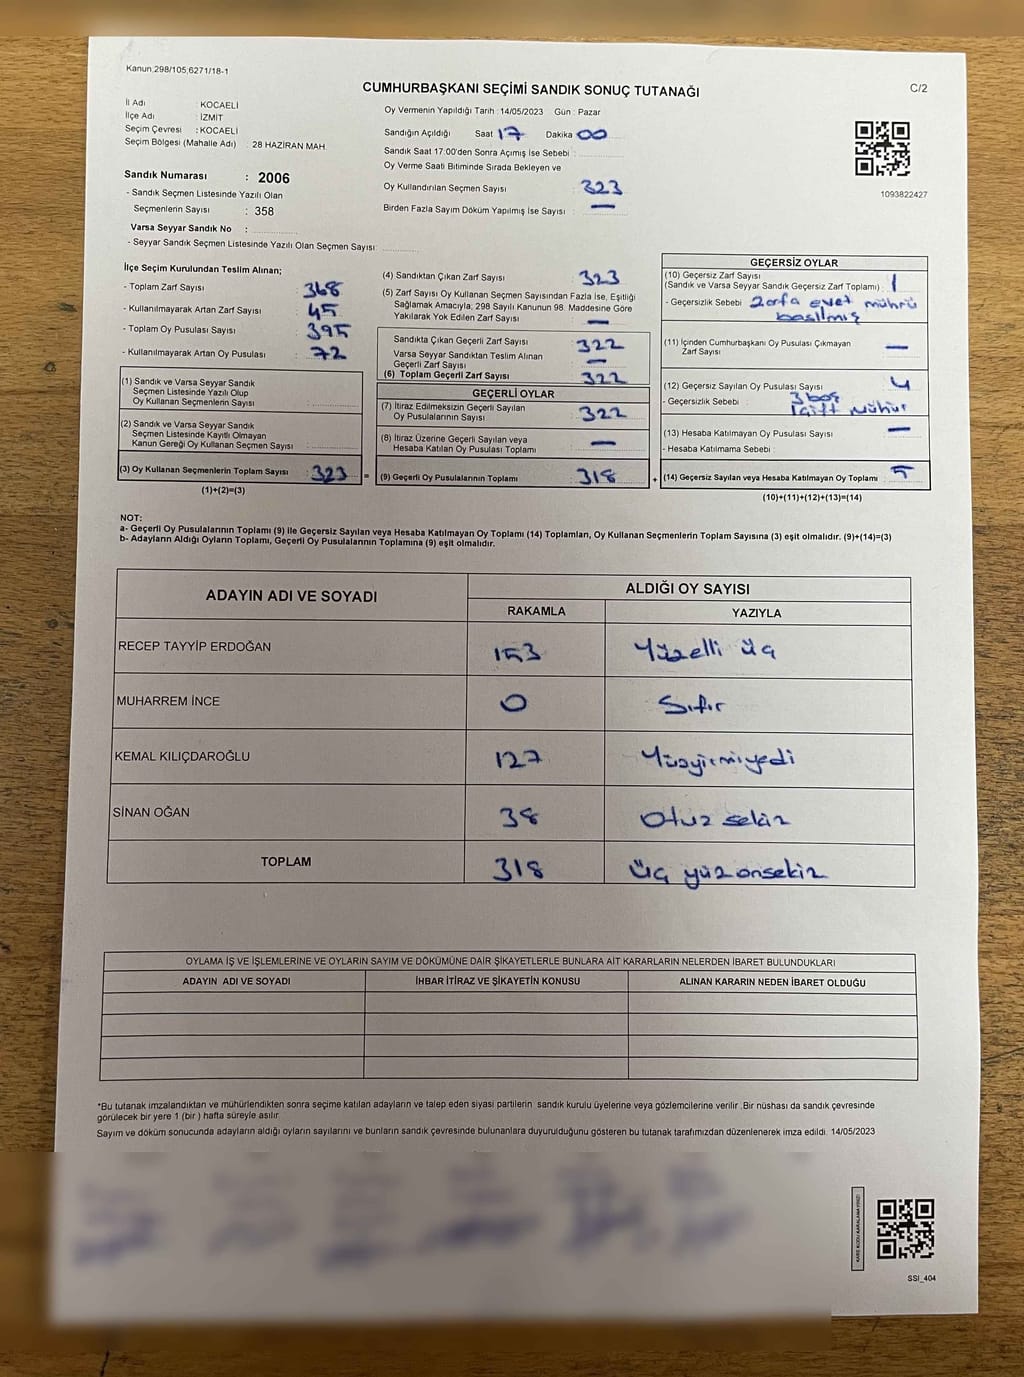 Kanun 298/105,6271/18-1
CUMHURBAŞKANI SEÇİMİ SANDIK SONUÇ TUTANAĞI
C/2
İl Adı : KOCAELİ
İlçe Adı : İZMİT
Seçim Çevresi : KOCAELİ
Seçim Bölgesi (Mahalle Adı) : 28 HAZİRAN MAH.
Sandık Numarası : 2006
- Sandık Seçmen Listesinde Yazılı Olan
Seçmenlerin Sayısı : 358
Varsa Seyyar Sandık No :
- Seyyar Sandık Seçmen Listesinde Yazılı Olan Seçmen Sayısı:
Oy Vermenin Yapıldığı Tarih : 14/05/2023 Gün : Pazar
Sandığın Açıldığı Saat 17 Dakika 00
Sandık Saat 17:00'den Sonra Açımış İse Sebebi :
Oy Verme Saati Bitiminde Sırada Bekleyen ve
Oy Kullandırılan Seçmen Sayısı : 323
Birden Fazla Sayım Döküm Yapılmış İse Sayısı : —
1093822427
İlçe Seçim Kurulundan Teslim Alınan;
- Toplam Zarf Sayısı : 368
- Kullanılmayarak Artan Zarf Sayısı : 45
- Toplam Oy Pusulası Sayısı : 395
- Kullanılmayarak Artan Oy Pusulası : 72
(1) Sandık ve Varsa Seyyar Sandık
Seçmen Listesinde Yazılı Olup
Oy Kullanan Seçmenlerin Sayısı :
(2) Sandık ve Varsa Seyyar Sandık
Seçmen Listesinde Kayıtlı Olmayan
Kanun Gereği Oy Kullanan Seçmen Sayısı :
(3) Oy Kullanan Seçmenlerin Toplam Sayısı : 323
(1)+(2)=(3)
(4) Sandıktan Çıkan Zarf Sayısı : 323
(5) Zarf Sayısı Oy Kullanan Seçmen Sayısından Fazla İse, Eşitliği
Sağlamak Amacıyla; 298 Sayılı Kanunun 98. Maddesine Göre
Yakılarak Yok Edilen Zarf Sayısı : —
Sandıkta Çıkan Geçerli Zarf Sayısı : 322
Varsa Seyyar Sandıktan Teslim Alınan
Geçerli Zarf Sayısı : —
(6) Toplam Geçerli Zarf Sayısı : 322
GEÇERLİ OYLAR
(7) İtiraz Edilmeksizin Geçerli Sayılan
Oy Pusulalarının Sayısı : 322
(8) İtiraz Üzerine Geçerli Sayılan veya
Hesaba Katılan Oy Pusulası Toplamı : —
= (9) Geçerli Oy Pusulalarının Toplamı : 318
GEÇERSİZ OYLAR
(10) Geçersiz Zarf Sayısı
(Sandık ve Varsa Seyyar Sandık Geçersiz Zarf Toplamı) : 1
- Geçersizlik Sebebi : Zarfa evet mührü
basılmış
(11) İçinden Cumhurbaşkanı Oy Pusulası Çıkmayan
Zarf Sayısı : —
(12) Geçersiz Sayılan Oy Pusulası Sayısı : 4
- Geçersizlik Sebebi : 3 boş
1 çift mühür
(13) Hesaba Katılmayan Oy Pusulası Sayısı : —
- Hesaba Katılmama Sebebi :
+ (14) Geçersiz Sayılan veya Hesaba Katılmayan Oy Toplamı : 5
(10)+(11)+(12)+(13)=(14)
NOT:
a- Geçerli Oy Pusulalarının Toplamı (9) ile Geçersiz Sayılan veya Hesaba Katılmayan Oy Toplamı (14) Toplamları, Oy Kullanan Seçmenlerin Toplam Sayısına (3) eşit olmalıdır. (9)+(14)=(3)
b- Adayların Aldığı Oyların Toplamı, Geçerli Oy Pusulalarının Toplamına (9) eşit olmalıdır.
ADAYIN ADI VE SOYADI ALDIĞI OY SAYISI
RAKAMLA YAZIYLA
RECEP TAYYİP ERDOĞAN 153 Yüzelli üç
MUHARREM İNCE 0 Sıfır
KEMAL KILIÇDAROĞLU 127 Yüzyirmiyedi
SİNAN OĞAN 38 Otuz sekiz
TOPLAM 318 Üç yüz onsekiz
OYLAMA İŞ VE İŞLEMLERİNE VE OYLARIN SAYIM VE DÖKÜMÜNE DAİR ŞİKAYETLERLE BUNLARA AİT KARARLARIN NELERDEN İBARET BULUNDUKLARI
ADAYIN ADI VE SOYADI İHBAR İTİRAZ VE ŞİKAYETİN KONUSU ALINAN KARARIN NEDEN İBARET OLDUĞU
*Bu tutanak imzalandıktan ve mühürlendikten sonra seçime katılan adayların ve talep eden siyasi partilerin sandık kurulu üyelerine veya gözlemcilerine verilir. Bir nüshası da sandık çevresinde
görülecek bir yere 1 (bir ) hafta süreyle asılır.
Sayım ve döküm sonucunda adayların aldığı oyların sayılarını ve bunların sandık çevresinde bulunanlara duyurulduğunu gösteren bu tutanak tarafımızdan düzenlenerek imza edildi. 14/05/2023
SSİ_404